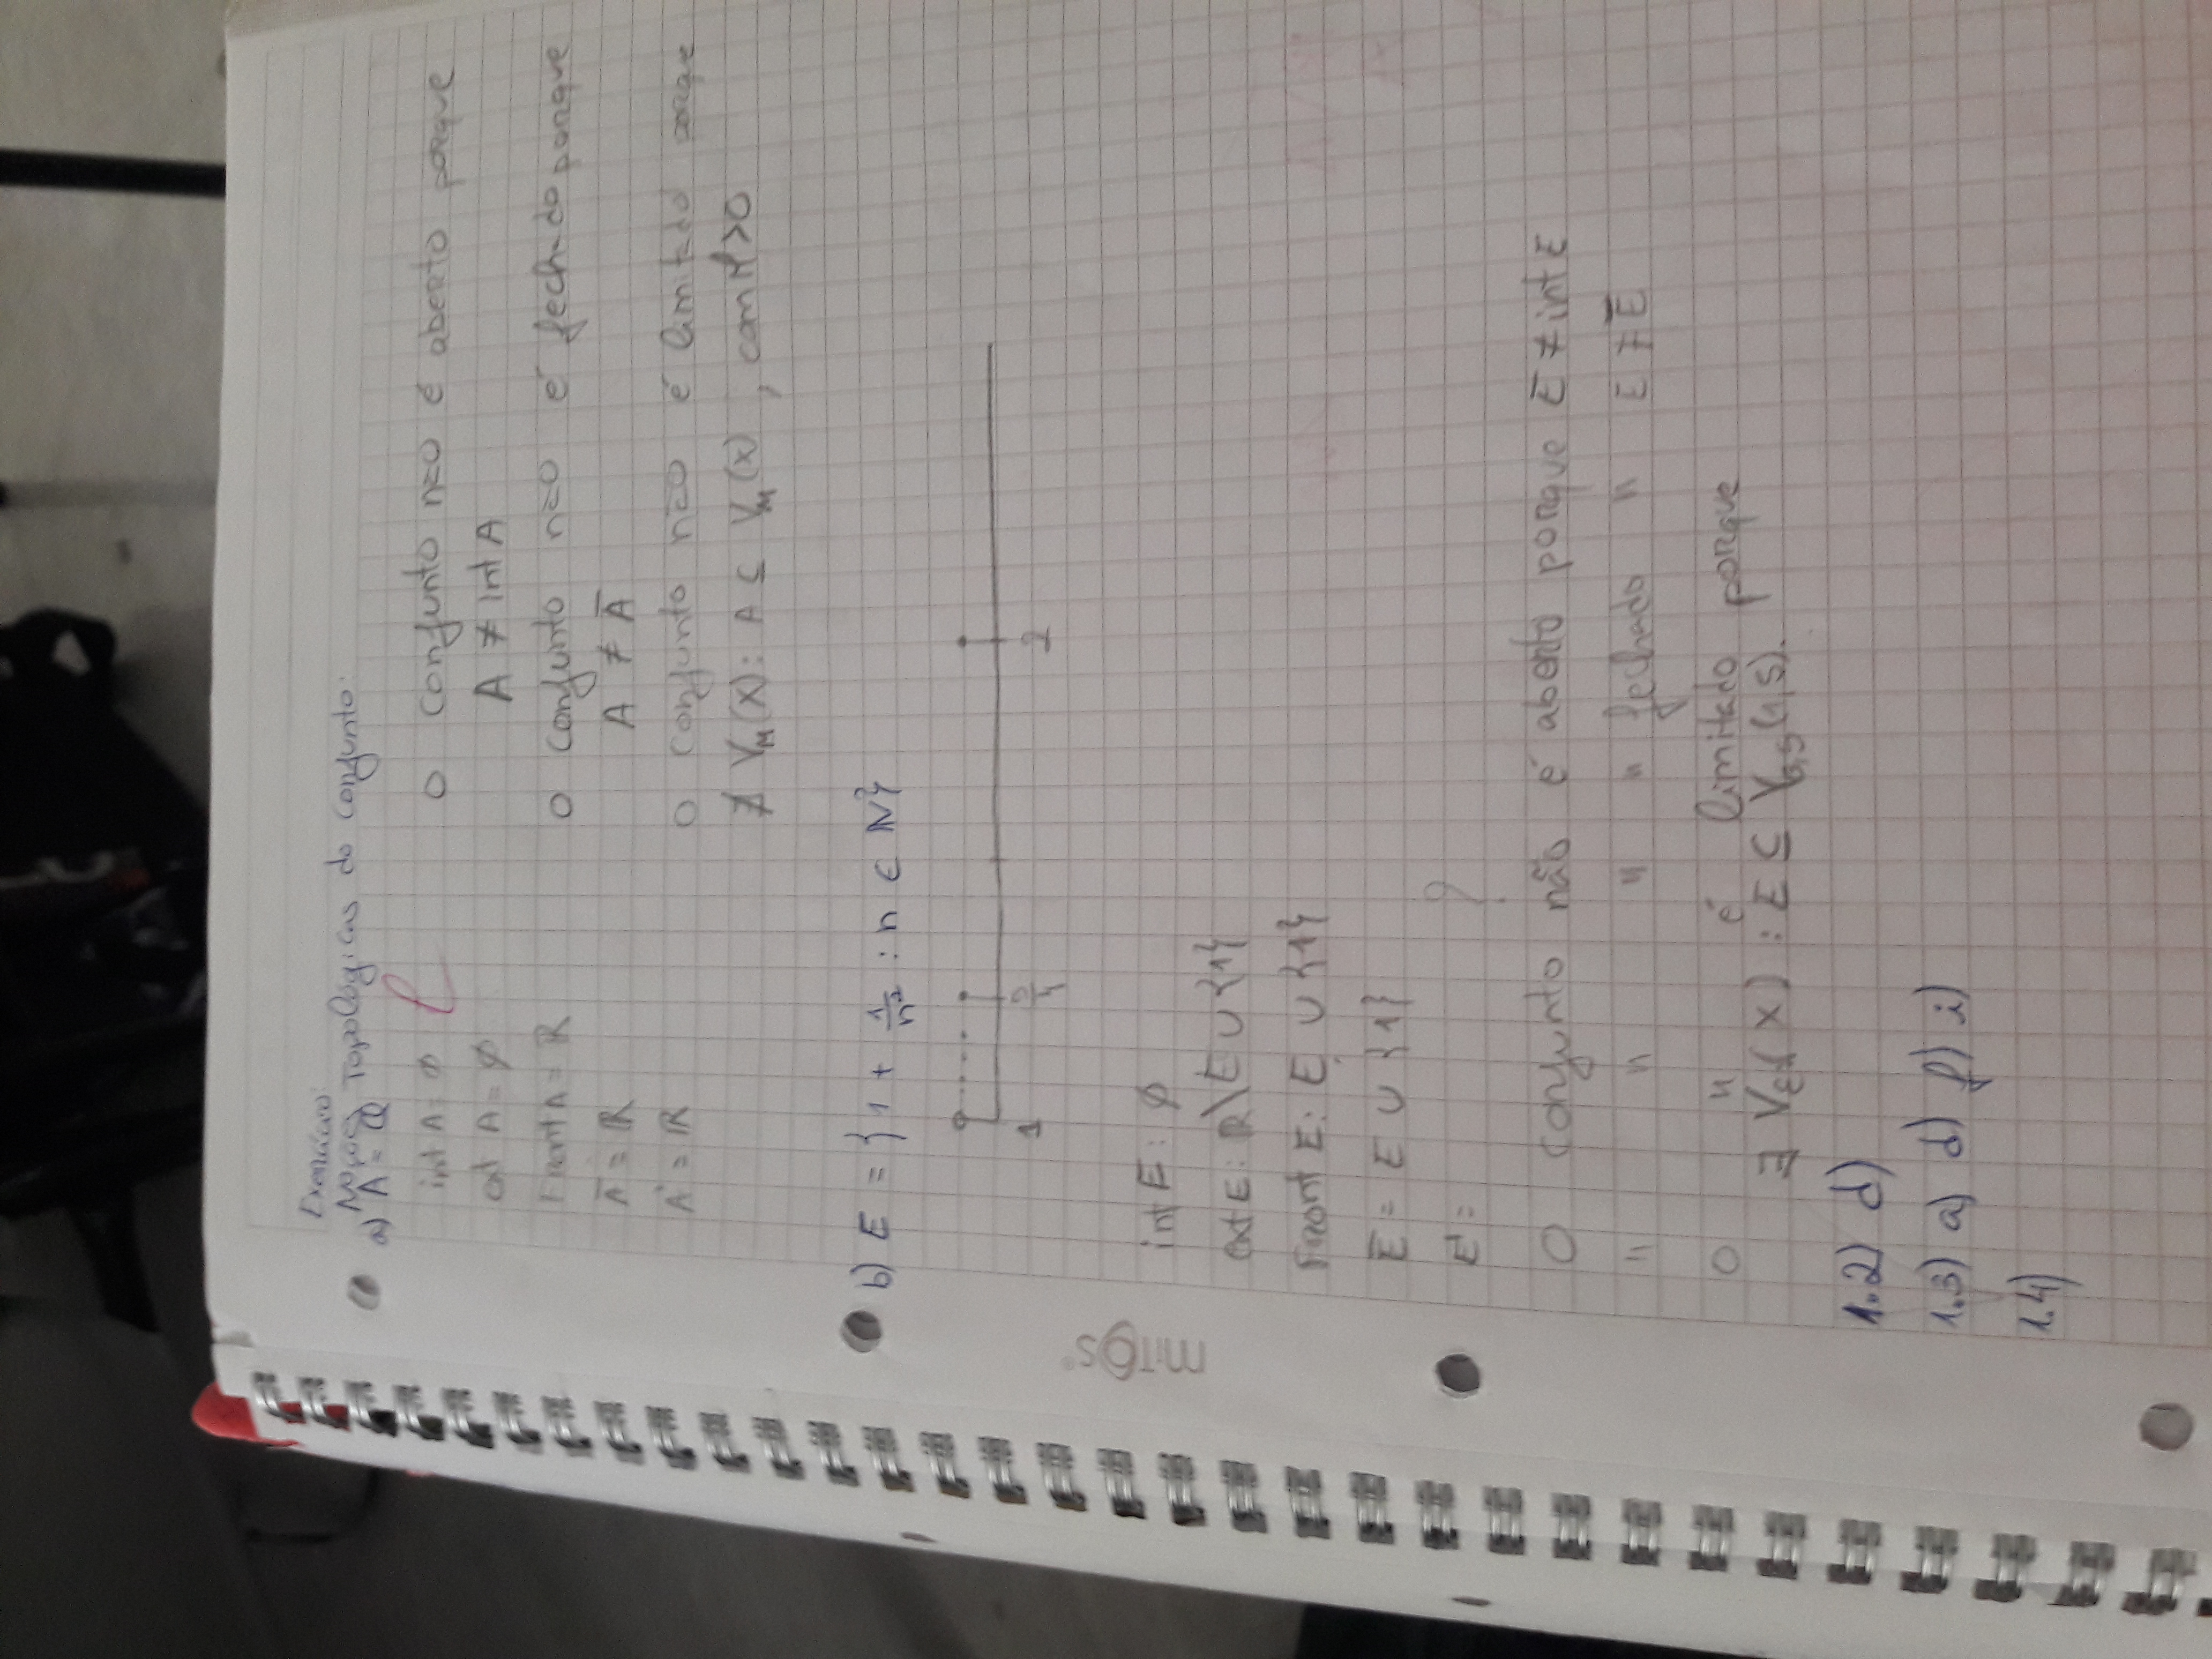 Exercício:
Noções Topológicas do conjunto:
a) A = Q
int A = ∅
ext A = ∅
Front A = ℝ
Ā = ℝ
A' = ℝ
O conjunto não é aberto porque
A ≠ int A
O conjunto não é fechado porque
A ≠ Ā
O conjunto não é limitado porque
∄ V_M(x): A ⊆ V_M(x), com M>0
b) E = {1 + 1/n² : n ∈ ℕ}
1 5/4 2
int E: ∅
ext E: ℝ\E ∪ {1}
Front E: E ∪ {1}
Ē = E ∪ {1}
E' = ?
O conjunto não é aberto porque E ≠ int E
" " " " fechado " E ≠ Ē
O " é limitado porque
∃ V_ε(x) : E ⊆ V_0,5(1,5).
1.2) d)
1.3) a) d) f) i)
1.4)
MiTOS